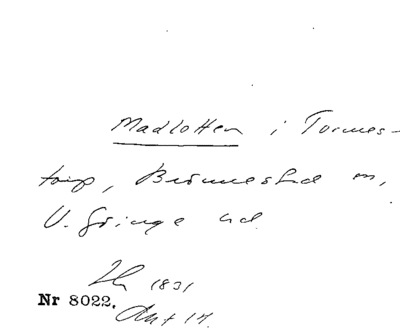 Madlotten i Tormes-
torp, Brönnestad sn,
V. Göinge hd
1831
Nr 8022. Akt 17.